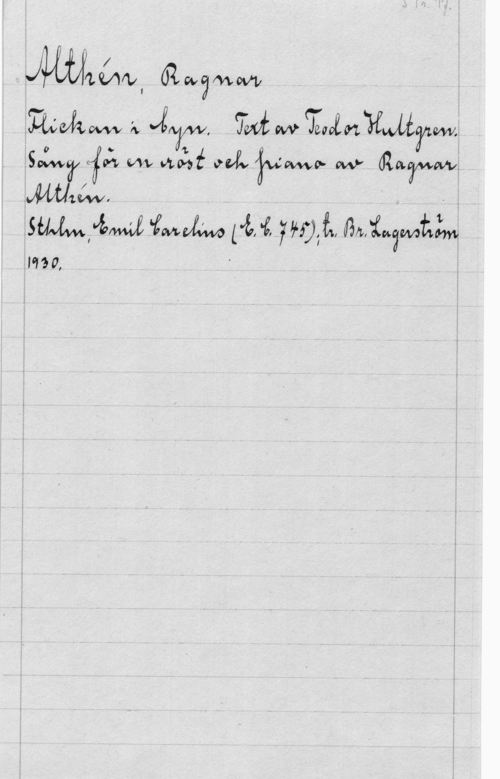 Althén, Ragnar
Flickan i byn. Text av Teodor Hultgren.
Sång för en röst och piano av Ragnar
Althén.
Sthlm, Emil Carelius (E. C. 745); tr. Br. Lagerström
1930.